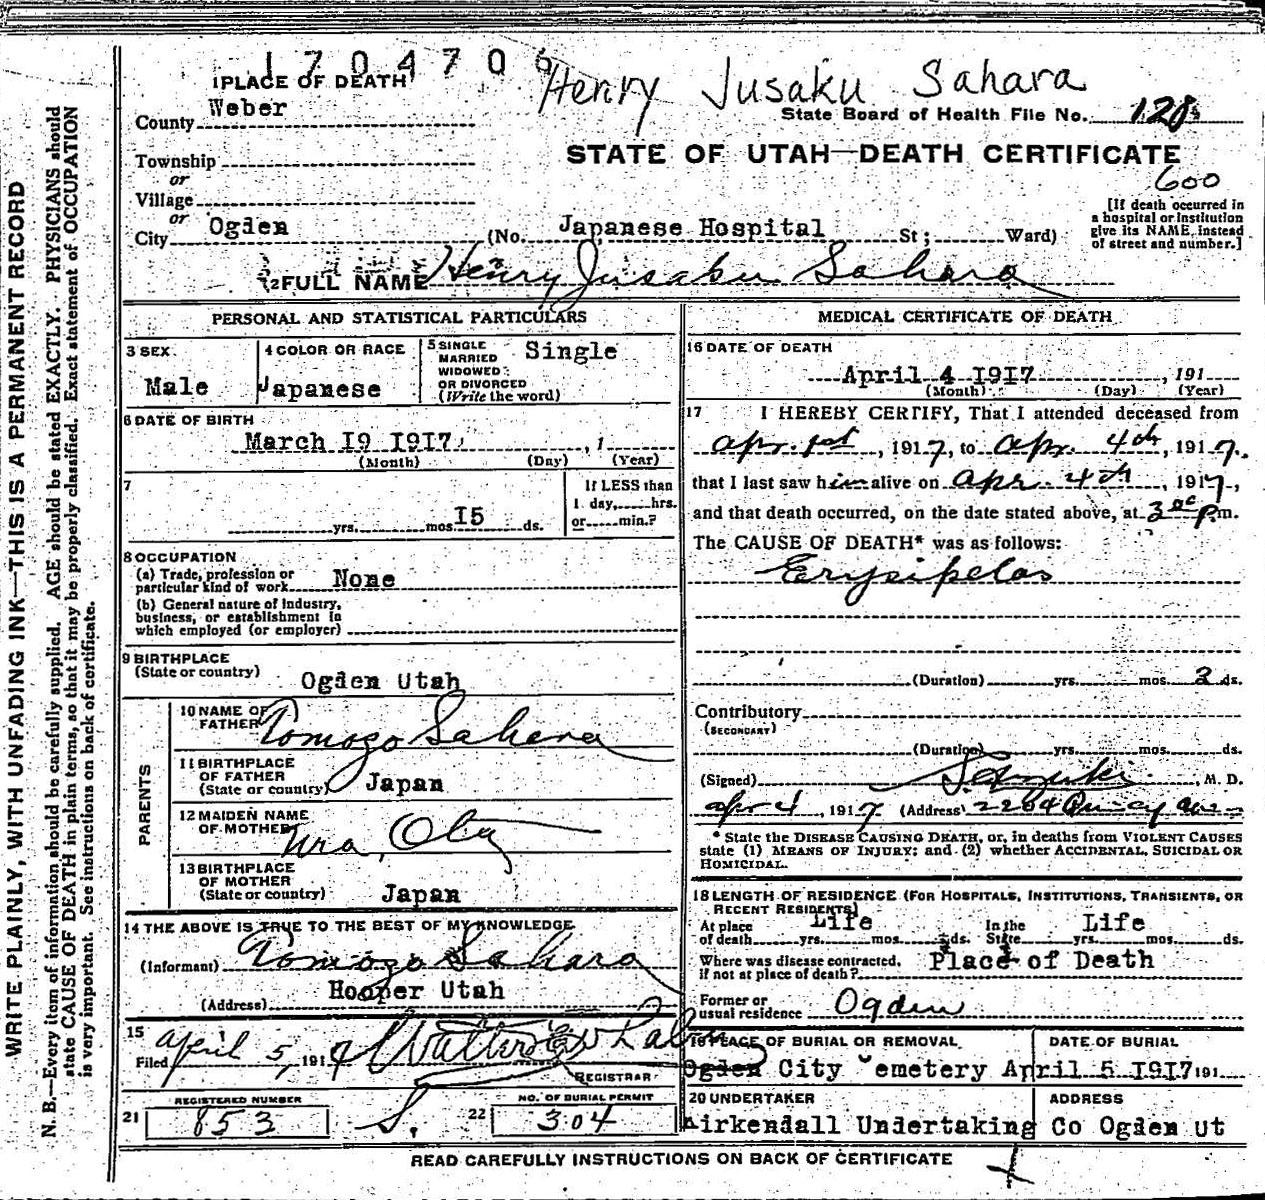 1704706
Henry Jusaku Sahara
1 PLACE OF DEATH
State Board of Health File No. 128
County Weber
STATE OF UTAH—DEATH CERTIFICATE
600
Township
or
Village
or
City Ogden (No. Japanese Hospital St; Ward)
[If death occurred in
a hospital or institution
give its NAME, instead
of street and number.]
2 FULL NAME Henry Jusaku Sahara
PERSONAL AND STATISTICAL PARTICULARS
3 SEX Male
4 COLOR OR RACE Japanese
5 SINGLE
MARRIED
WIDOWED
OR DIVORCED
(Write the word)
Single
6 DATE OF BIRTH
March I9 I9I7, 1
(Month) (Day) (Year)
7
yrs. mos. I5 ds.
If LESS than
1 day, hrs.
or min.?
8 OCCUPATION
(a) Trade, profession or
particular kind of work None
(b) General nature of industry,
business, or establishment in
which employed (or employer)
9 BIRTHPLACE
(State or country) Ogden Utah
PARENTS
10 NAME OF
FATHER Tomozo Sahara
11 BIRTHPLACE
OF FATHER
(State or country) Japan
12 MAIDEN NAME
OF MOTHER Ura,
13 BIRTHPLACE
OF MOTHER
(State or country) Japan
14 THE ABOVE IS TRUE TO THE BEST OF MY KNOWLEDGE
(Informant) Tomozo Sahara
(Address) Hooper Utah
15
Filed April 5, 1917
REGISTRAR
21 REGISTERED NUMBER
853
S.
22 NO. OF BURIAL PERMIT
304
MEDICAL CERTIFICATE OF DEATH
16 DATE OF DEATH
April 4 I9I7, 191
(Month) (Day) (Year)
17 I HEREBY CERTIFY, That I attended deceased from
apr. 1st, 1917, to apr. 4th, 1917,
that I last saw him alive on apr. 4th, 1917,
and that death occurred, on the date stated above, at 3 oc P.m.
The CAUSE OF DEATH* was as follows:
Erysipelas
(Duration) yrs. mos. 3 ds.
Contributory
(SECONDARY)
(Duration) yrs. mos. ds.
(Signed) , M. D.
apr 4, 1917 (Address) 2264 Quincy ave
* State the DISEASE CAUSING DEATH, or, in deaths from VIOLENT CAUSES
state (1) MEANS OF INJURY; and (2) whether ACCIDENTAL, SUICIDAL OR
HOMICIDAL.
18 LENGTH OF RESIDENCE (FOR HOSPITALS, INSTITUTIONS, TRANSIENTS, OR
RECENT RESIDENTS)
At place
of death Life yrs. mos. ds.
In the
State Life yrs. mos. ds.
Where was disease contracted,
if not at place of death? Place of Death
Former or
usual residence Ogden
19 PLACE OF BURIAL OR REMOVAL
Ogden City emetery
DATE OF BURIAL
April 5 I9I7 191
20 UNDERTAKER
irkendall Undertaking Co
ADDRESS
Ogden Ut
READ CAREFULLY INSTRUCTIONS ON BACK OF CERTIFICATE
WRITE PLAINLY, WITH UNFADING INK—THIS IS A PERMANENT RECORD
N. B.—Every item of information should be carefully supplied. AGE should be stated EXACTLY. PHYSICIANS should
state CAUSE OF DEATH in plain terms, so that it may be properly classified. Exact statement of OCCUPATION
is very important. See instructions on back of certificate.